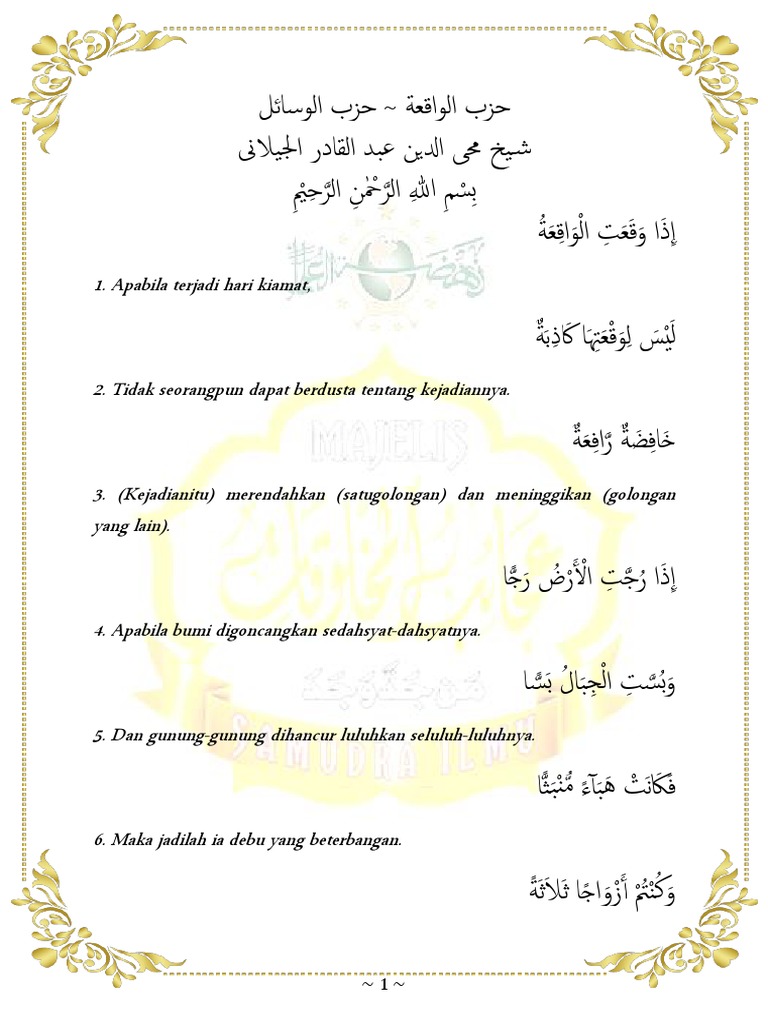 حزب الواقعة ~ حزب الوسائل
شيخ محى الدين عبد القادر الجيلانى
بِسْمِ اللهِ الرَّحْمٰنِ الرَّحِيْمِ
إِذَا وَقَعَتِ الْوَاقِعَةُ
1. Apabila terjadi hari kiamat,
لَيْسَ لِوَقْعَتِهَا كَاذِبَةٌ
2. Tidak seorangpun dapat berdusta tentang kejadiannya.
خَافِضَةٌ رَّافِعَةٌ
MAJELIS
3. (Kejadianitu) merendahkan (satugolongan) dan meninggikan (golongan
yang lain).
إِذَا رُجَّتِ الْأَرْضُ رَجًّا
4. Apabila bumi digoncangkan sedahsyat-dahsyatnya.
وَبُسَّتِ الْجِبَالُ بَسًّا
5. Dan gunung-gunung dihancur luluhkan seluluh-luluhnya.
SAMUDRA ILMU
فَكَانَتْ هَبَآءً مُّنْبَثًّا
6. Maka jadilah ia debu yang beterbangan.
وَكُنْتُمْ أَزْوَاجًا ثَلاَثَةً
~ 1 ~